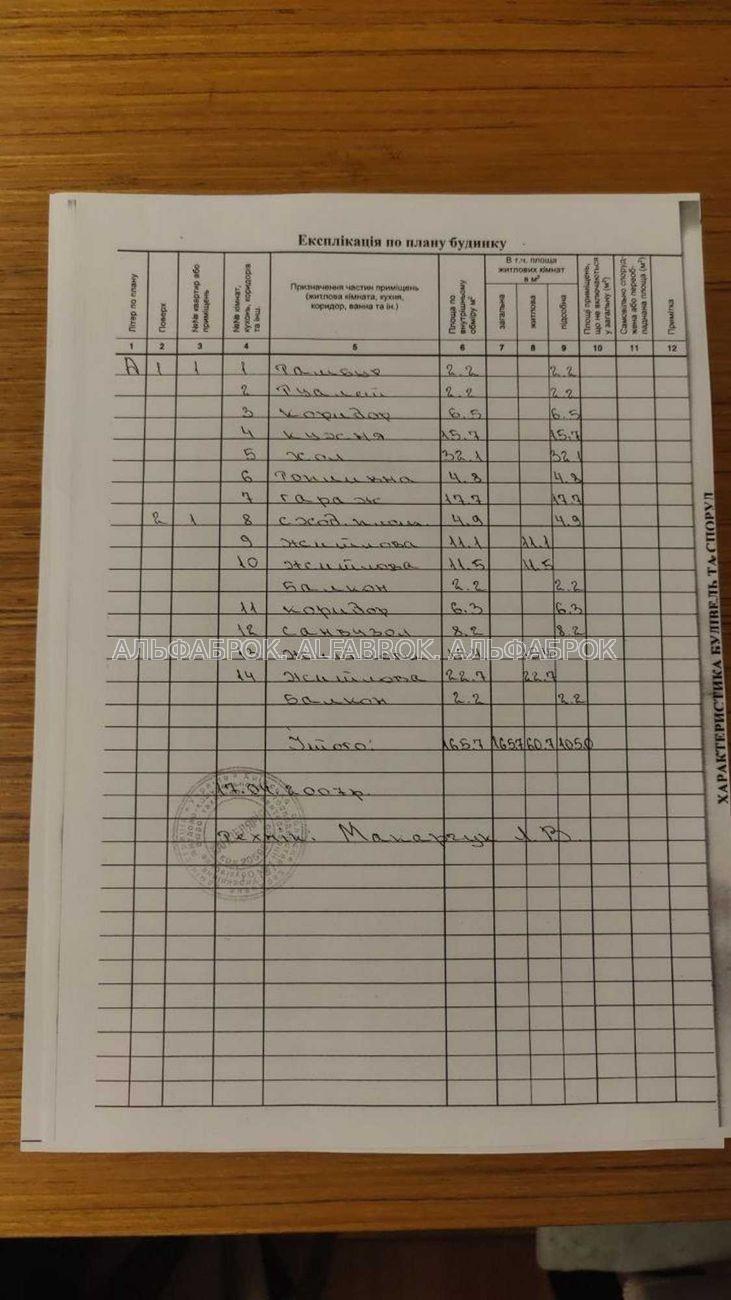 Експлікація по плану будинку
Літер по плану
Поверх
№№ квартир або приміщень
№№ кімнат, кухонь, коридорів та інш.
Призначення частин приміщень (житлова кімната, кухня, коридор, ванна та ін.)
Площа по внутрішньому обміру м²
В т.ч. площа житлових кімнат в м²
загальна
житлова
підсобна
Площі приміщень, що не включаються у загальну (м²)
Самовільно споруджена або переобладнана площа (м²)
Примітка
1 2 3 4 5 6 7 8 9 10 11 12
А 1 1 1 Тамбур 2.2 2.2
2 Туалет 2.2 2.2
3 коридор 6.5 6.5
4 кухня 15.7 15.7
5 хол 32.1 32.1
6 Топочна 4.8 4.8
7 гараж 17.7 17.7
2 1 8 сход. кліт. 4.9 4.9
9 житлова 11.1 11.1
10 житлова 11.5 11.5
Балкон 2.2 2.2
11 коридор 6.3 6.3
12 санвузол 8.2 8.2
АЛЬФАБРОК. ALFABROK. АЛЬФАБРОК
14 житлова 22.7 22.7
Балкон 2.2 2.2
Усього: 165.7 165.7 60.7 105.0
17.04.2007р.
Технік. Макарчук Л.В.
ХАРАКТЕРИСТИКА БУДІВЕЛЬ ТА СПОРУД